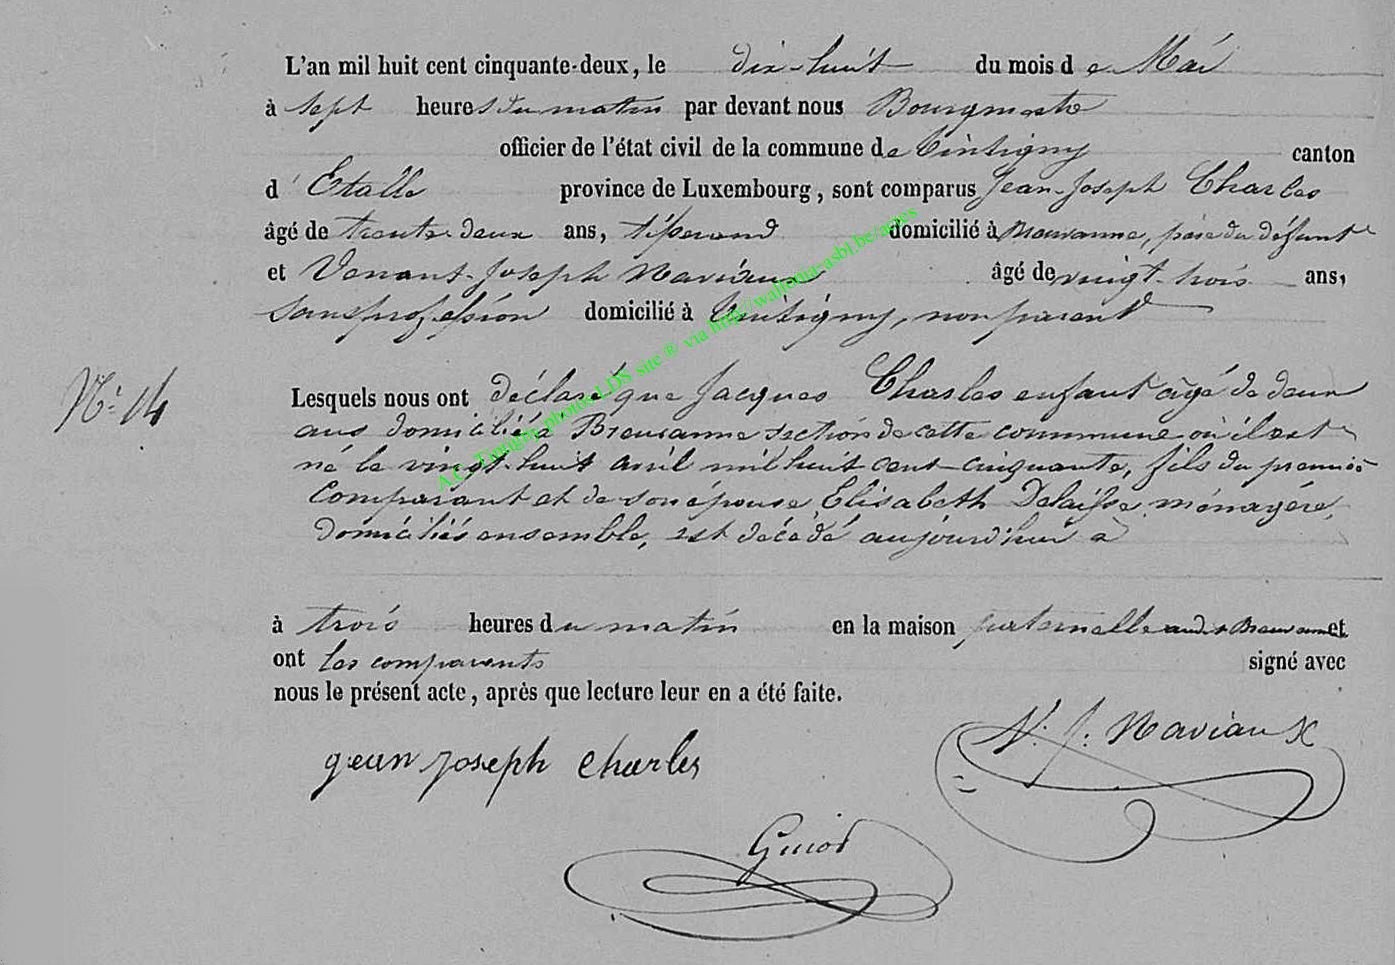 L'an mil huit cent cinquante-deux, le dix-huit du mois de Mai
à sept heures du matin par devant nous Bourgmestre
officier de l'état civil de la commune de Tintigny canton
d'Etalle province de Luxembourg, sont comparus Jean-Joseph Charles
âgé de trente-deux ans, tisserand domicilié à Breuvanne, père du défunt
et Venant-Joseph Naviaux âgé de vingt-trois ans,
sans profession domicilié à Tintigny, non parent
N° 14
Lesquels nous ont déclaré que Jacques Charles enfant âgé de deux
ans domicilié à Breuvanne section de cette commune où il est
né le vingt-huit avril mil huit cent-cinquante, fils du premier
comparant et de son épouse Elisabeth Delaisse ménagère,
domiciliés ensemble, est décédé aujourd'hui à
à trois heures du matin en la maison paternelle audit Breuvanne et
ont les comparants signé avec
nous le présent acte, après que lecture leur en a été faite.
N. J. Naviaux
jean joseph charles
Guiot
A.C. Tintigny photos LDS site ® via http://wallonia-asbl.be/actes